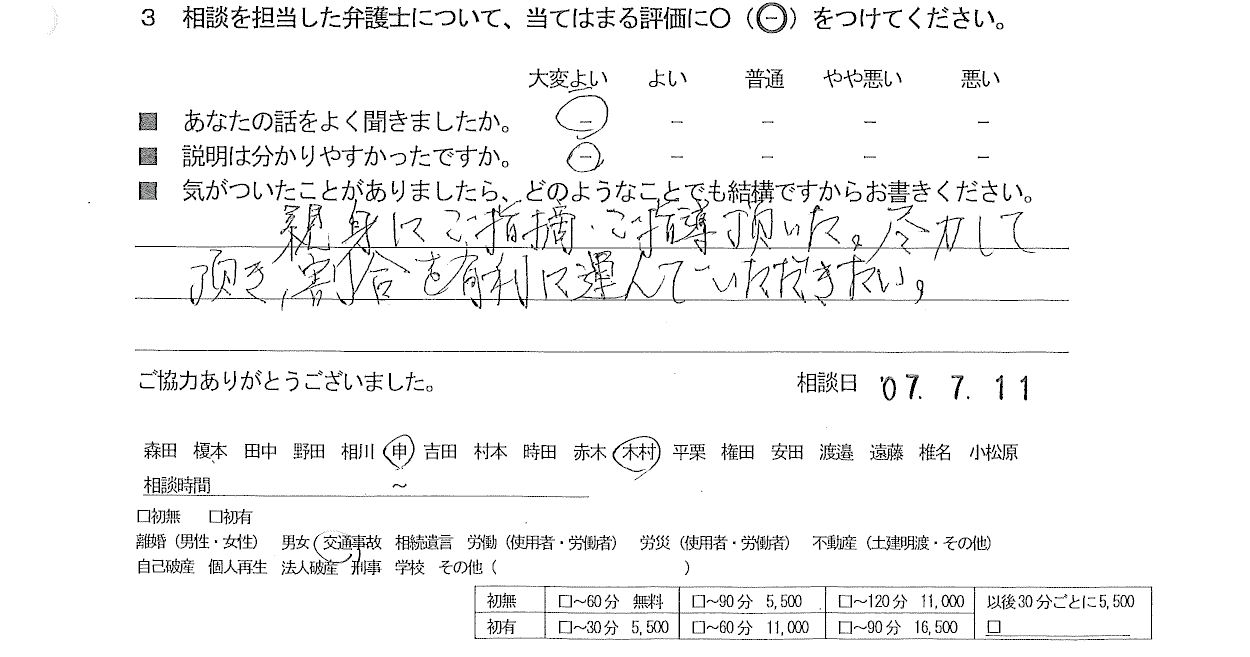 3 相談を担当した弁護士について、当てはまる評価に○(⊖)をつけてください。
大変よい よい 普通 やや悪い 悪い
■ あなたの話をよく聞きましたか。 − − − − −
■ 説明は分かりやすかったですか。 − − − − −
■ 気がついたことがありましたら、どのようなことでも結構ですからお書きください。
親身にご指摘・ご指導頂いた。尽力して
頂き、割合を有利に運んでいただきたい。
ご協力ありがとうございました。 相談日 '07. 7. 11
森田 榎本 田中 野田 相川 申 吉田 村本 時田 赤木 木村 平栗 権田 安田 渡邉 遠藤 椎名 小松原
相談時間 ～
□初無 □初有
離婚（男性・女性） 男女 交通事故 相続遺言 労働（使用者・労働者） 労災（使用者・労働者） 不動産（土建明渡・その他）
自己破産 個人再生 法人破産 刑事 学校 その他（ ）
初無 □～60分 無料 □～90分 5,500 □～120分 11,000 以後30分ごとに5,500
初有 □～30分 5,500 □～60分 11,000 □～90分 16,500 □